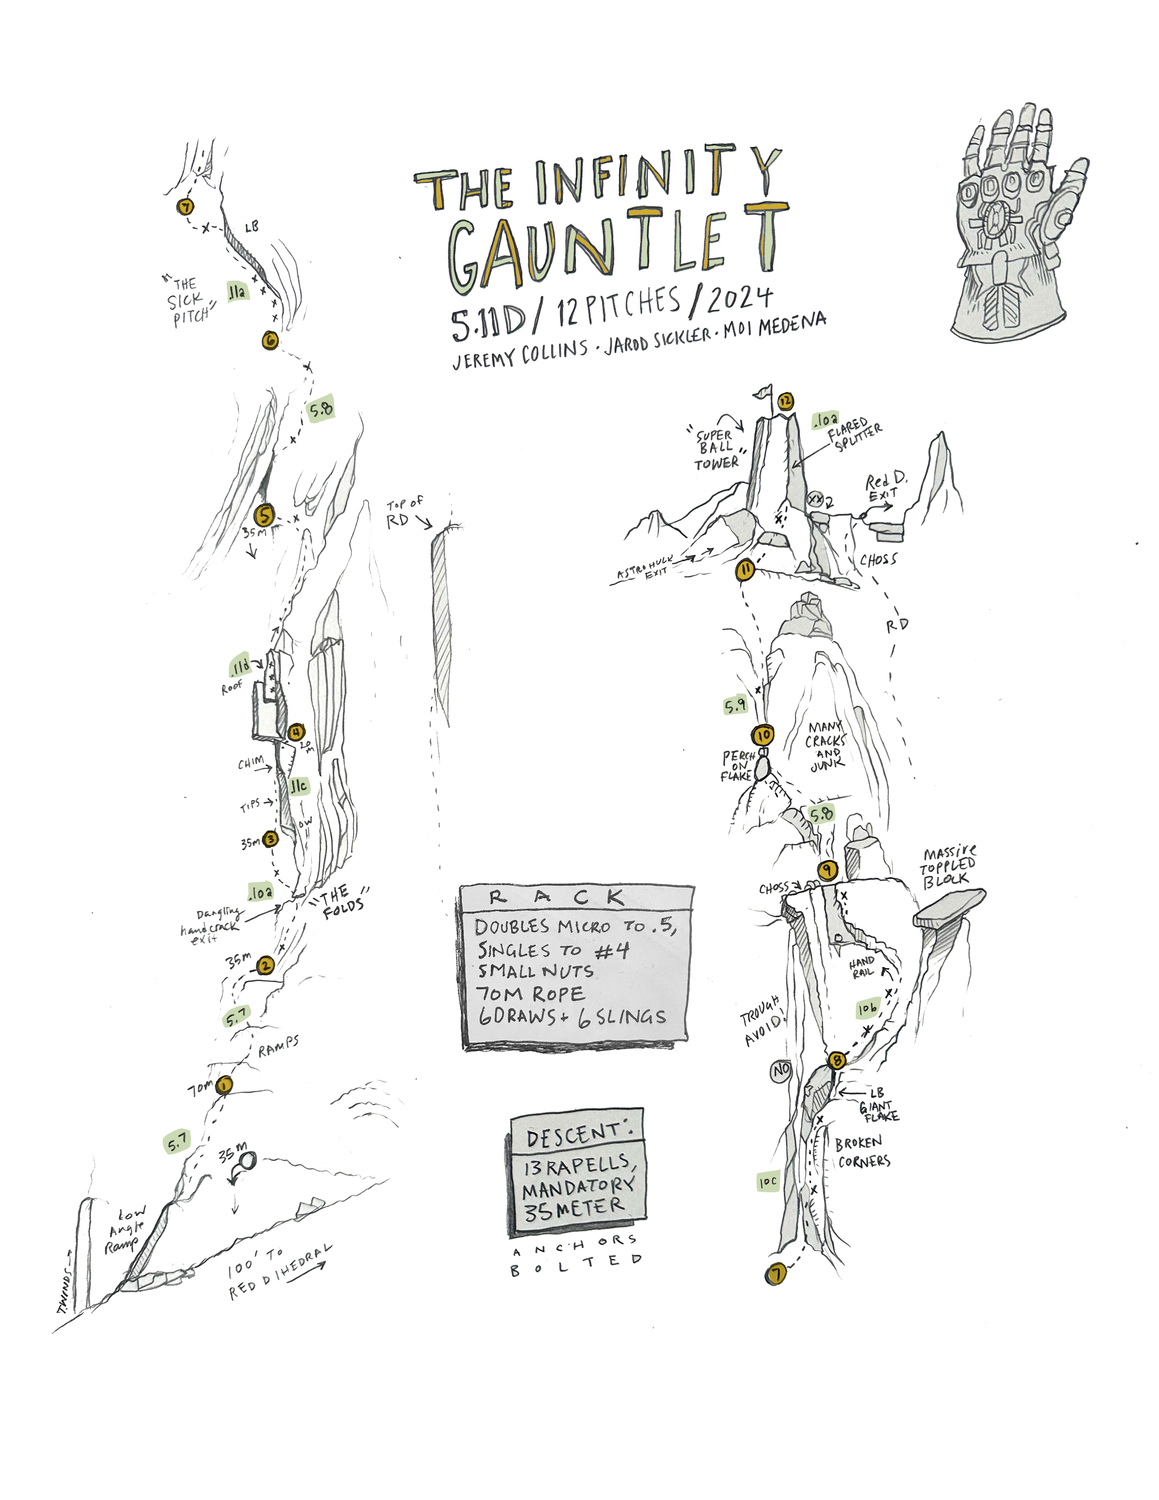 THE INFINITY
GAUNTLET
5.11D / 12 PITCHES / 2024
JEREMY COLLINS · JAROD SICKLER · MOI MEDENA
7
LB
"THE
SICK
PITCH"
.11a
6
5.8
5
35M
TOP OF
RD
.11d
ROOF
4
20
M
CHIM
.11c
TIPS
OW
35M
3
.10a
"THE
FOLDS"
Dangling
handcrack
exit
35M
2
5.7
RAMPS
70M
1
5.7
35M
Low
Angle
Ramp
T.WINDS
100' TO
RED DIHEDRAL
RACK
DOUBLES MICRO TO .5,
SINGLES TO #4
SMALL NUTS
70M ROPE
6 DRAWS + 6 SLINGS
DESCENT:
13 RAPELLS,
MANDATORY
35 METER
ANCHORS
BOLTED
12
.10a
FLARED
SPLITTER
"SUPER
BALL
TOWER"
XX
Red D.
EXIT
CHOSS
ASTROHULK
EXIT
11
RD
5.9
10
PERCH
ON
FLAKE
MANY
CRACKS
AND
JUNK
5.8
9
CHOSS
MASSIVE
TOPPLED
BLOCK
HAND
RAIL
10b
TROUGH
AVOID!
NO
8
LB
GIANT
FLAKE
BROKEN
CORNERS
10c
7